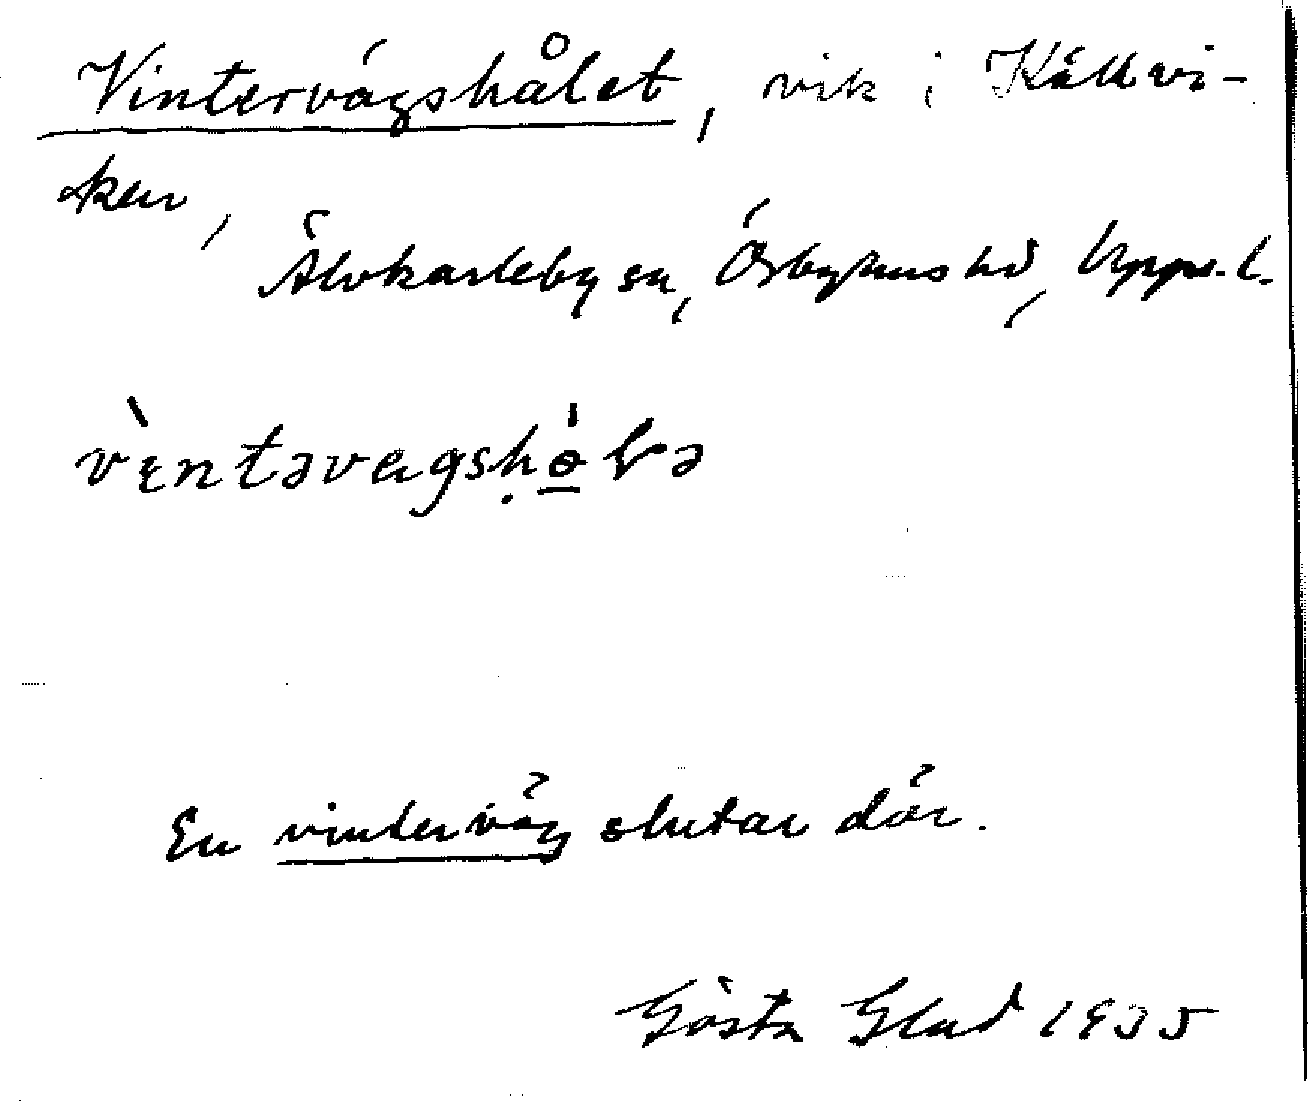 Vintervägshålet, vik i Källvi-
ken,
Älvkarleby sn, Örbyhus hd, Upps. l.
vɛntəvægshɵ̀ɽə
En vinterväg slutar där.
Gösta Glad 1935